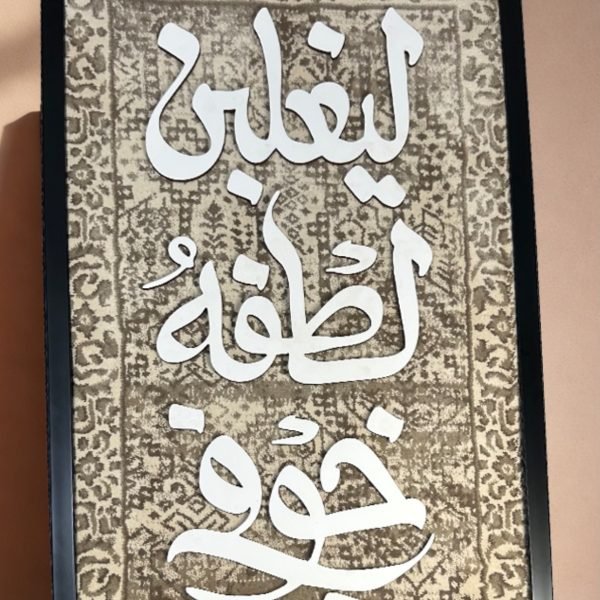 ليغلبن
لطْفهُ
خوْفي